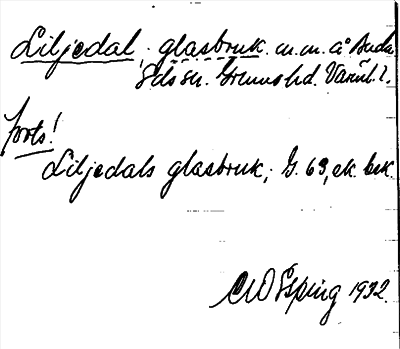 Liljedal, glasbruk. m.m. å Buda
Eds sn. Grums hd. Värml. l.
forts!
Liljedals glasbruk, G. 63, ek. bek.
CWO Esping 1932.